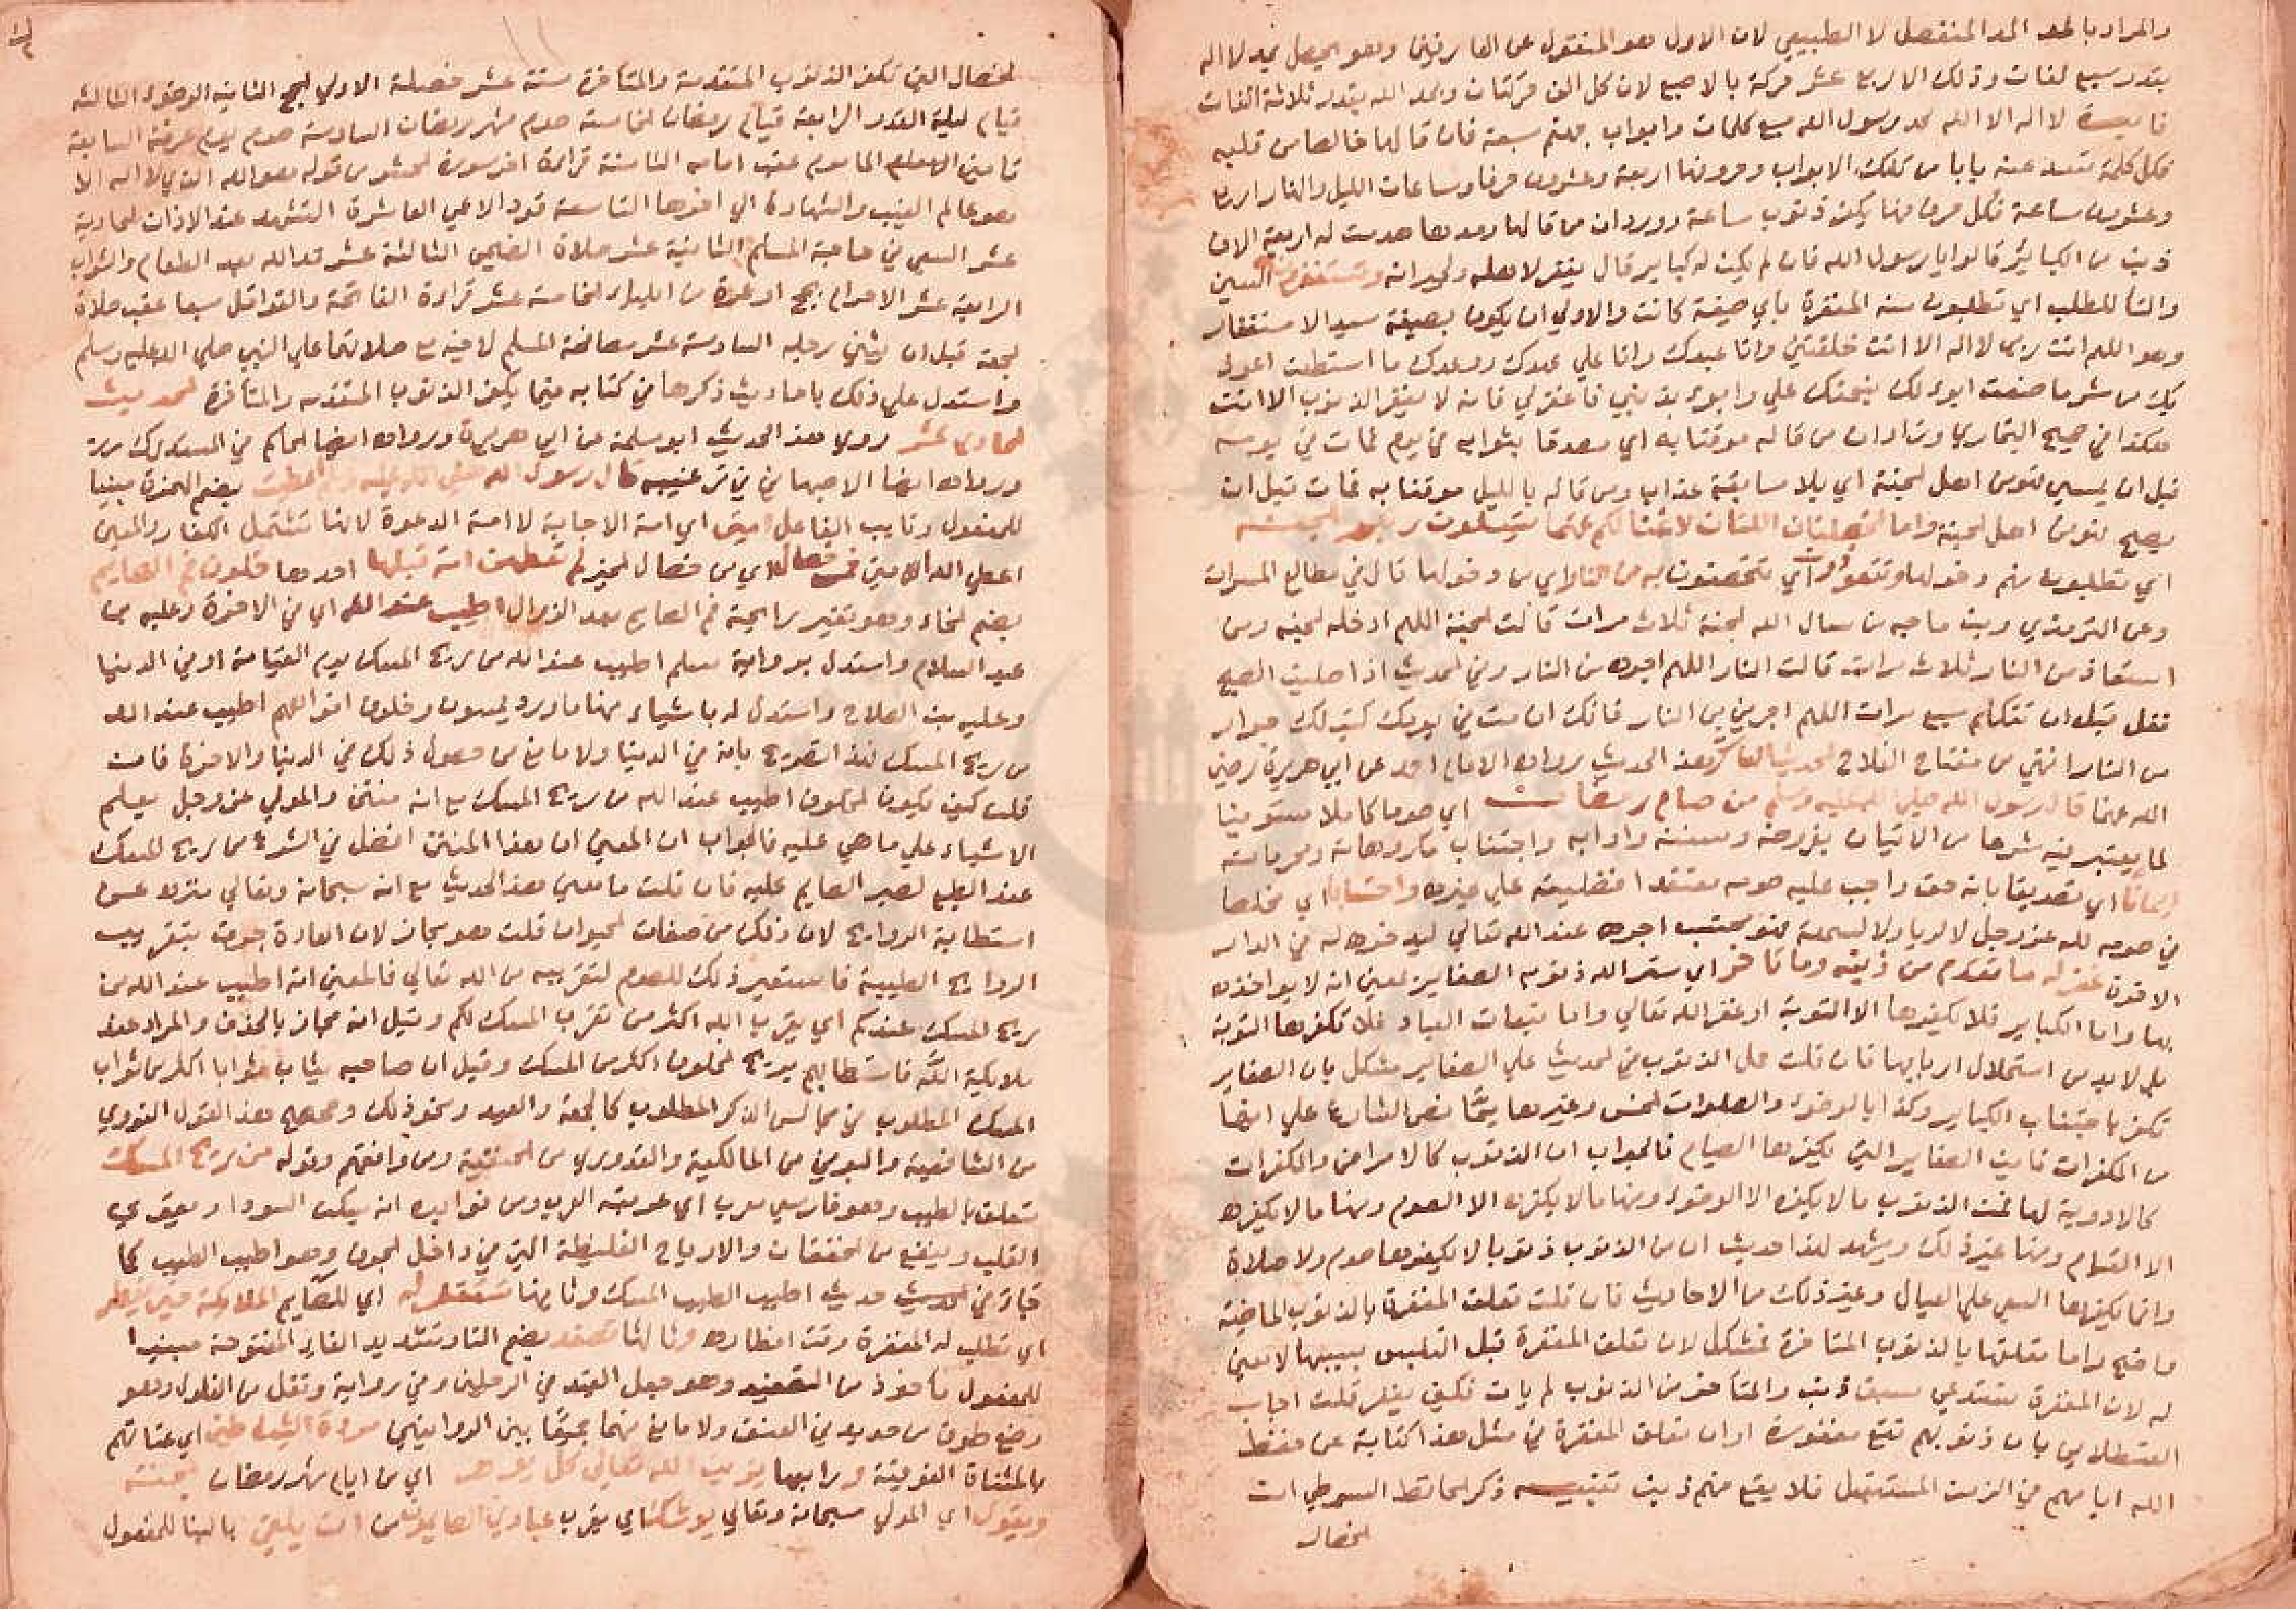 والمراد بالمد المد المنفصل لا الطبيعي لان الاول هو المنقول عن العارفين وهو يحصل بمد لا اله
بقدر سبع لغات وذلك الاربع عشر حركة بالاصبع لان كل الف حركتان ويمد الله بقدر ثلاثة الفات
فايدة لا اله الا الله محمد رسول الله سبع كلمات وابواب جهنم سبعة فان قالها خالصا من قلبه
فكل كلمة تسد عنه بابا من تلك الابواب وحروفها اربعة وعشرون حرفا وساعات الليل والنهار اربع
وعشرون ساعة فكل حرف منها يكفر ذنوب ساعة وورد ان من قالها ومدها هدمت له اربعة الاف
ذنب من الكبائر قالوا يا رسول الله فان لم يكن له كبائر قال يغفر لاهله ولجيرانه وتستغفرونه السين
والتا للطلب اي تطلبون منه المغفرة باي صيغة كانت والاولي ان يكون بصيغة سيد الاستغفار
وهو اللهم انت ربي لا اله الا انت خلقتني وانا عبدك وانا علي عهدك ووعدك ما استطعت اعوذ
بك من شر ما صنعت ابوء لك بنعمتك علي وابوء بذنبي فاغفر لي فانه لا يغفر الذنوب الا انت
هكذا في صحيح البخاري وزاد ان من قاله موقنا به اي مصدقا بثوابه في يوم فمات من يومه
قبل ان يمسي فهو من اهل الجنة اي بلا سابقة عذاب ومن قاله بالليل موقنا به فمات قبل ان
يصبح فهو من اهل الجنة واما الخصلتان اللتان لا غنا لكم عنهما فتسئلون ربكم الجنة
اي تطلبون منه دخولها وتتعوذون اي تتحصنون به من النار اي من دخولها قال في مطالع المسرات
وعن الترمذي وبن ماجه من سال الله الجنة ثلاث مرات قالت الجنة اللهم ادخله الجنة ومن
استعاذ من النار ثلاث مرات قالت النار اللهم اجره من النار وفي الحديث اذا صليت الصبح
فقل قبل ان تتكلم سبع مرات اللهم اجرني من النار فانك ان مت من يومك كتب لك جوار
من النار انتهي من مفتاح الفلاح الحديث العاشر هذا الحديث رواه الامام احمد عن ابي هريرة رضي
الله عنه قال رسول الله صلي الله عليه وسلم من صام رمضان اي صوما كاملا مستوفيا
لما يعتبر فيه شرعا من الاتيان بفروضه وسننه وادابه واجتناب مكروهاته ومحرماته
ايمانا اي تصديقا بانه حق واجب عليه صومه معتقدا افضليته علي غيره واحتسابا اي مخلصا
في صومه لله عز وجل لا لريا ولا لسمعة فهو محتسب اجره عند الله تعالي ليدخره له في الدار
الاخرة غفر له ما تقدم من ذنبه وما تاخر اي ستر الله ذنوبه الصغاير بمعني انه لا يواخذه
بها واما الكباير فلا يكفرها الا التوبة او عفو الله تعالي واما تبعات العباد فلا تكفرها التوبة
بل لا بد من استحلال اربابها فان قلت حمل الذنوب في الحديث علي الصغاير مشكل بان الصغاير
تكفر باجتناب الكباير وكذا بالوضوء والصلوات الخمس وغيرهما مما نص الشارع علي انها
من المكفرات فاين الصغاير التي يكفرها الصيام فالجواب ان الذنوب كالامراض والمكفرات
كالادوية لها فمن الذنوب ما لا يكفره الا الوضوء ومنها ما لا يكفره الا الصوم ومنها ما لا يكفره
الا القيام ومنها غير ذلك ويشهد لهذا حديث ان من الذنوب ذنوبا لا يكفرها صوم ولا صلاة
وانما يكفرها السعي علي العيال وغير ذلك من الاحاديث فان قلت تعلق المغفرة بالذنوب الماضية
واضح واما تعلقها بالذنوب المتاخرة فمشكل لان تعلق المغفرة قبل التلبس بسببها لا معني
له لان المغفرة تستدعي سبق ذنب والمتاخر من الذنوب لم يات فكيف يغفر قلت اجاب
القسطلاني بان ذنوبهم تقع مغفورة او ان تعلق المغفرة في مثل هذا كناية عن حفظ
الله اياهم في الزمن المستقبل فلا يقع منهم ذنب تنبيه ذكر الحافظ السيوطي ان
الخصال
الخصال التي تكفر الذنوب المتقدمة والمتاخرة ستة عشر خصلة الاولي الحج الثانية الوضوء الثالثة
قيام ليلة القدر الرابعة قيام رمضان الخامسة صوم شهر رمضان السادسة صوم يوم عرفة السابعة
تامين الماموم عقب امامه الثامنة قراءة اخر سورة الحشر من قوله هو الله الذي لا اله الا
هو عالم الغيب والشهادة الي اخرها التاسعة قود الاعمي العاشرة التشهد عند الاذان الحادية
عشر السعي في حاجة المسلم الثانية عشر صلاة الضحي الثالثة عشر حمد الله بعد الطعام والشراب
الرابعة عشر الاحرام بحج او عمرة من ايلياء الخامسة عشر قراءة الفاتحة والقواقل سبعا عقب صلاة
الجمعة قبل ان يثني رجليه السادسة عشر مصافحة المسلم لاخيه مع صلاتهما علي النبي صلي الله عليه وسلم
واستدل علي ذلك باحاديث ذكرها في كتابه فيما يكفر الذنوب المتقدمة والمتاخرة الحديث
الحادي عشر روي هذا الحديث ابو سلمة عن ابي هريرة ورواه ايضا الحاكم في المستدرك
ورواه ايضا الاصبهاني في ترغيبه قال رسول الله صلي الله عليه وسلم اعطيت بضم الهمزة مبنيا
للمفعول ونايب الفاعل امتي اي امة الاجابة لا امة الدعوة لانها تشتمل الكفار والمعني
اعطي الله الامين خمس خصال اي من خصال الخير لم تعطهن امة قبلها احدها خلوف فم الصايم
بضم الخاء وهو تغير رايحة فم الصايم بعد الزوال اطيب عند الله اي في الاخرة وعليه بن
عبد السلام واستدل برواية مسلم اطيب عند الله من ريح المسك يوم القيامة او في الدنيا
وعليه بن الصلاح واستدل له باشياء منها ما ورد يمسون وخلوف افواههم اطيب عند الله
من ريح المسك فهذا تصريح بانه في الدنيا ولا مانع من حصول ذلك في الدنيا والاخرة فان
قلت كيف يكون الخلوف اطيب عند الله من ريح المسك مع انه منتن والمولي عز وجل يعلم
الاشياء علي ما هي عليه فالجواب ان المعني ان هذا المنتن افضل في الشرع من ريح المسك
عند الطبع لصبر الصايم عليه فان قلت ما معني هذا الحديث مع انه سبحانه وتعالي منزه عن
استطابة الروايح لان ذلك من صفات الحيوان قلت هو مجاز لان العادة جرت بتقريب
الروايح الطيبة فاستعير ذلك للصوم لتقريبه من الله تعالي فالمعني انه اطيب عند الله من
ريح المسك عندكم اي يقرب الله اكثر من تقرب المسك لكم وقيل انه مجاز بالحذف والمراد عند
ملايكة الله فاستطابهم بريح الخلوف اكثر من المسك وقيل ان صاحبه يثاب ثوابا اكثر من ثواب
المسك المطلوب في مجالس الذكر المطلوب كالجمعة والعيد ونحو ذلك وصحح هذا القول النووي
من الشافعية والبوني من المالكية والقدوري من الحنفية ومن وافقهم وقوله من ريح المسك
متعلق باطيب وهو فارسي معرب اي عربته العرب ومن فوايده انه يسكن السودا ويقوي
القلب وينفع من الخفقان والارياح الغليظة التي في داخل الجوف وهو اطيب الطيب كما
جاء في الحديث حديث اطيب الطيب المسك وثانيها تستغفر له اي للصايم الملايكة حين يفطر
اي تطلب له المغفرة وقت افطاره وثالثها تصفد بضم التا وتشديد الفاء المفتوحة مبنيا
للمفعول ماخوذ من التصفيد وهو جعل القيد في الرجلين وفي رواية وتغل من الغلول وهو
وضع طوق من حديد في العنق ولا مانع منهما جميعا بين الروايتين مردة الشياطين اي عتاتهم
بالمثناة الفوقية ورابعها يزين الله تعالي كل يوم اي من ايام شهر رمضان جنته
ويقول اي المولي سبحانه وتعالي يوشك اي يقرب عبادي الصايمون من ان يلقي بالبنا للمفعول